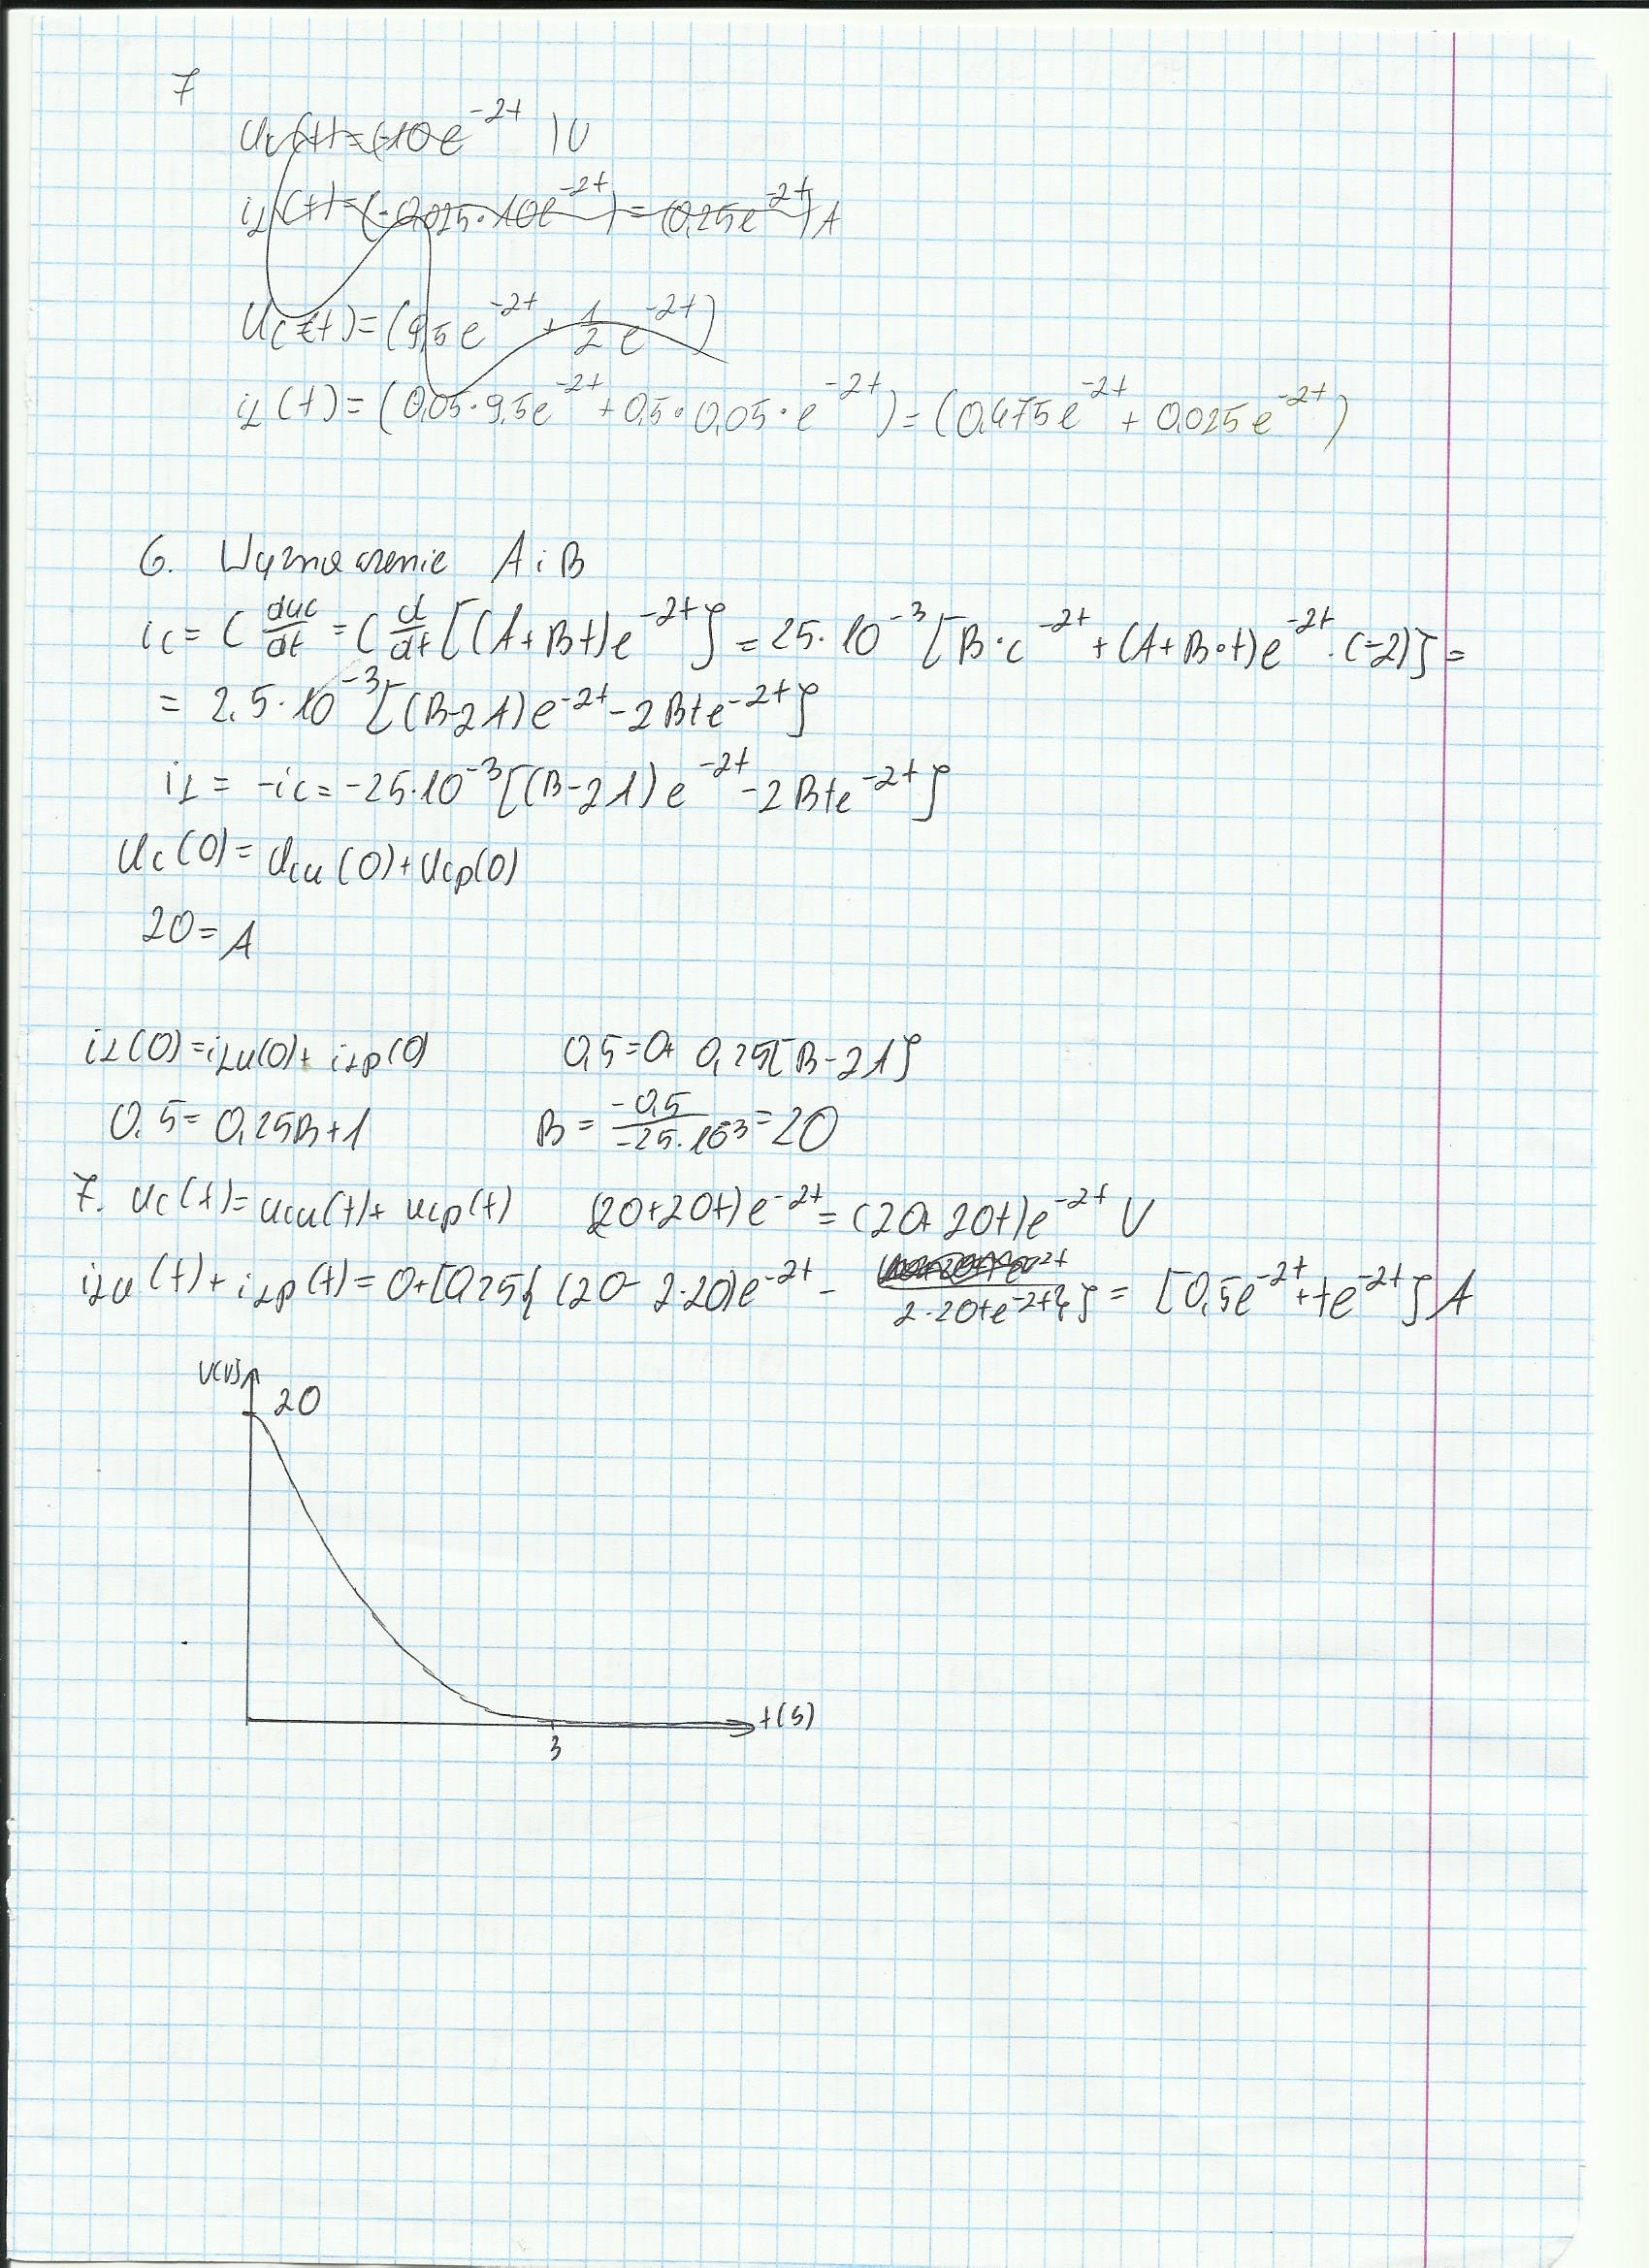 7
uc(t)=(-10e^-2t )V
iL(t)=(-0,025·10e^-2t)=(0,25e^-2t)A
uc(t)=(9,5e^-2t + 1/2 e^-2t)
iL(t)=(0,05·9,5e^-2t+0,5·0,05·e^-2t)=(0,475e^-2t + 0,025e^-2t)
6. Wyznaczenie A i B
ic= C duc/dt = C d/dt [(A+Bt)e^-2t] = 25·10^-3 [B·e^-2t + (A+B·t)e^-2t·(-2)] =
= 2,5·10^-3[(B-2A)e^-2t-2Bte^-2t]
iL= -ic= -25·10^-3[(B-2A)e^-2t-2Bte^-2t]
uc(0)= ucu(0)+ucp(0)
20= A
iL(0)=iLu(0)+ iLp(0) 0,5=0+ 0,25[B-2A]
0,5= 0,25B+1 B= -0,5/-25·10^-3=20
7. uc(t)= ucu(t)+ ucp(t) (20+20t)e^-2t= (20+20t)e^-2t V
iLu(t)+iLp(t)= 0+[0,25{(20- 2·20)e^-2t - 2·20te^-2t}] = [0,5e^-2t+te^-2t] A
U(V)
20
t(s)
3